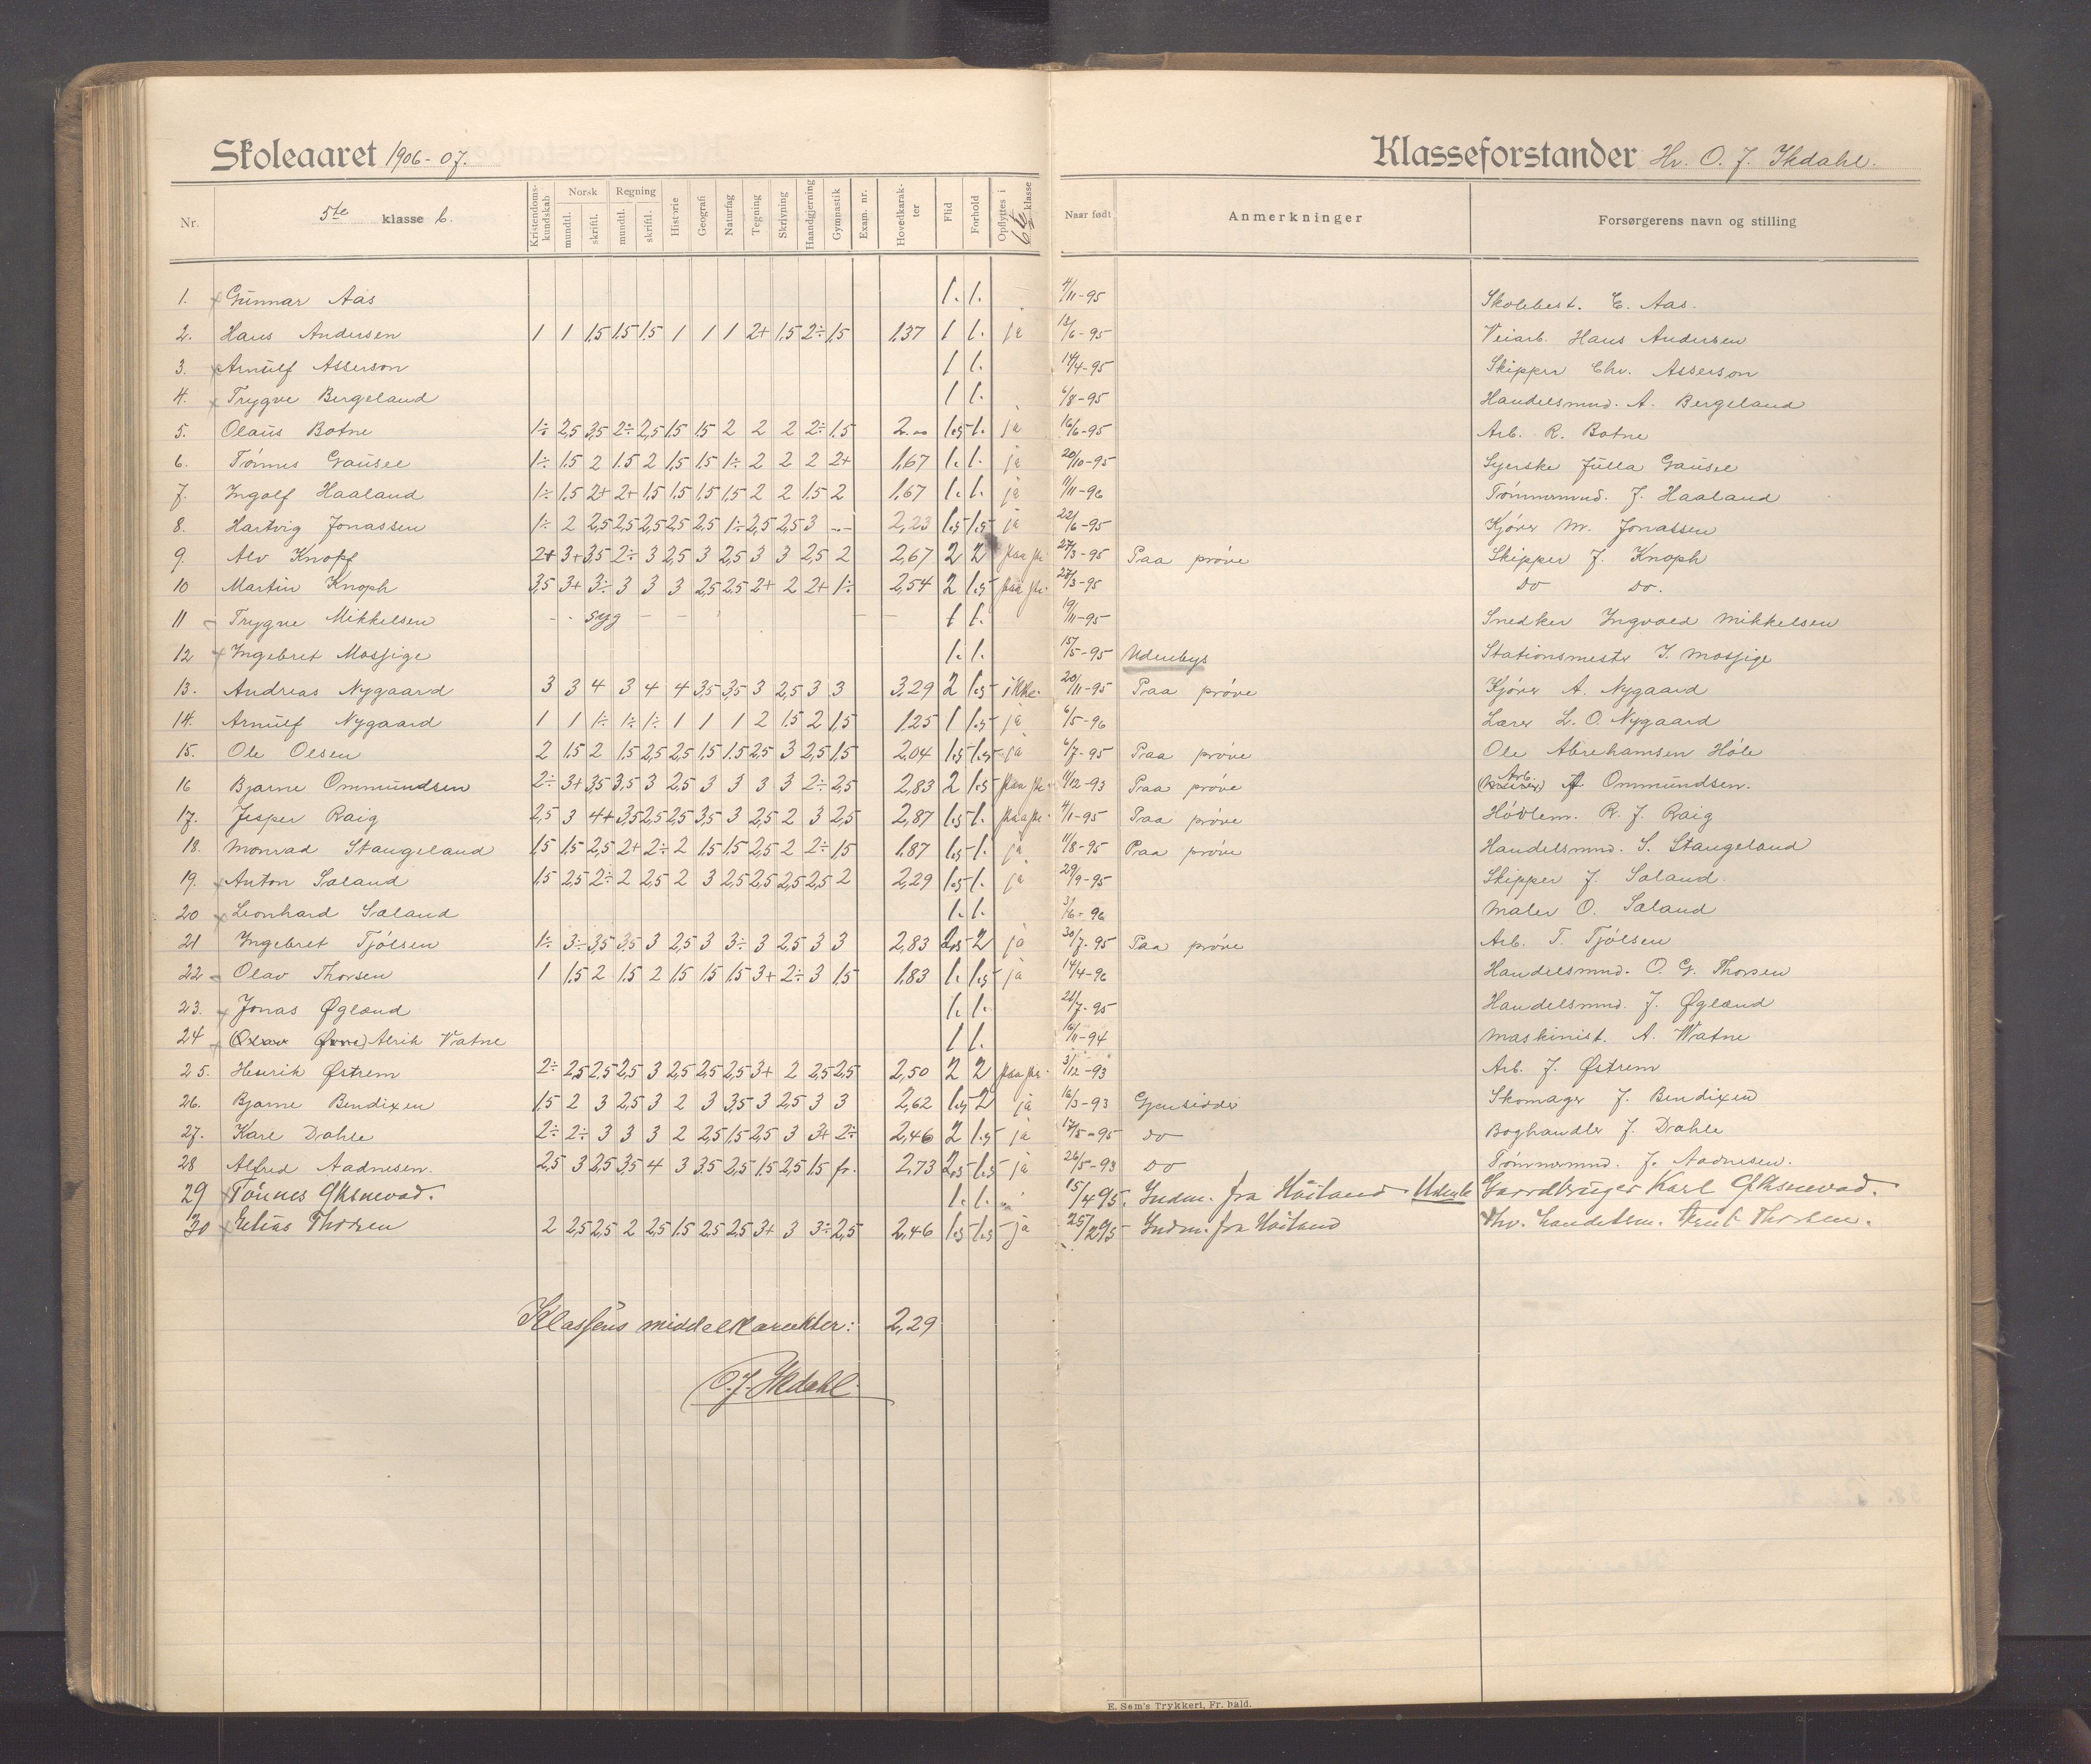 Skoleaaret 1906-07. Klasseforstander Hr. O. J. Skdahl.
Nr. 5te klasse b. Kristendoms-kundskab Norsk mundtl. skriftl. Regning mundtl. skriftl. Historie Geografi Naturfag Tegning Skrivning Haandgjerning Gymnastik Exam. nr. Hovedkarakter Flid Forhold Opflyttes i 6te klasse Naar født Anmerkninger Forsørgerens navn og stilling
1. Gunnar Aas 1. 1. 4/11-95 Skolebest. E. Aas.
2. Hans Andersen 1 1 1,5 1,5 1,5 1 1 1 2+ 1,5 2÷ 1,5 1,37 1 1. ja 12/6-95 Veiarb. Hans Andersen
3. Arnulf Asserson 1 1. 14/4-95 Skipper Chr. Asserson
4. Trygve Bergeland 1 1. 6/8-95 Handelsmnd. A. Bergeland
5. Olaus Botne 1÷ 2,5 3,5 2÷ 2,5 1,5 1,5 2 2 2 2÷ 1.5 2.00 1.5 1. ja 16/6-95 Arb. R. Botne
6. Tönnes Gausel 1÷ 1.5 2 1.5 2 1,5 1,5 1÷ 2 2 2 2+ 1,67 1. 1. ja 20/10-95 Syerske Julla Gausel
7. Ingolf Haaland 1÷ 1,5 2+ 2+ 1,5 1,5 1,5 1,5 2 2 1.5 2 1,67 1. 1. ja 11/11-96 Tömmermnd. J. Haaland
8. Hartvig Jonassen 1÷ 2 2,5 2,5 2,5 2,5 2,5 1÷ 2,5 2,5 3 -- 2,23 1.5 1.5 ja 22/6-95 Kjörer M. Jonassen
9. Alv Knopf 2+ 3+ 3,5 2÷ 3 2,5 3 2,5 3 3 2,5 2 2,67 2 2 paa pr. 27/3-95 Paa pröve Skipper J. Knoph
10 Martin Knoph 3,5 3+ 3÷ 3 3 3 2,5 2,5 2+ 2 2+ 1÷ 2,54 2 1.5 paa pr. 27/3-95 Do Do.
11 Trygve Mikkelsen - - syg - - - - - 1 1. 19/11-95 Snedker Ingvald Mikkelsen
12 Ingebret Mossige 1. 1. 15/5-95 Udenbys Stationsmester I. Mossige
13. Andreas Nygaard 3 3 4 3 4 4 3,5 3,5 3 2,5 3 3 3,29 2 1.5 ikke. 20/11-95 Paa pröve Kjörer A. Nygaard
14. Arnulf Nygaard 1 1 1÷ 1÷ 1÷ 1 1 1 2 1.5 2 1,5 1.25 1 1.5 ja 6/5-96 Lærer L. O. Nygaard
15. Ole Olsen 2 1.5 2 1.5 2,5 2,5 1,5 1.5 2,5 3 2,5 1,5 2,04 1.5 1.5 ja 6/7-95 Paa pröve Ole Abrehamsen Höle
16 Bjarne Ommundsen 2÷ 3+ 3,5 3,5 3 2,5 3 3 3 3 2÷ 2,5 2,83 2 1.5 paa pr. 11/12-93 Paa pröve Arb. Ommundsen.
17. Jesper Raig 2,5 3 4+ 3,5 2,5 2,5 3,5 3 2,5 2 3 2,5 2,87 1.5 1. paa pr. 4/1-95 Paa pröve Hövlem. R. J. Raig
18. Monrad Stangeland 1,5 1,5 2,5 2+ 2÷ 2 1,5 1,5 2,5 2 2÷ 1,5 1,87 1.5 1. ja 11/8-95 Paa pröve Handelsmnd. S. Stangeland
19. Anton Saland 1,5 2,5 2÷ 2 2,5 2 3 2,5 2,5 2,5 2,5 2 2,29 1.5 1. ja 29/9-95 Skipper J. Saland.
20 Leonhard Saland 1. 1. 3/6-96 Maler O. Saland
21 Ingebret Tjölsen 1÷ 3÷ 3,5 3,5 3 2,5 3 3÷ 3 2,5 3 3 2,83 2.5 2 ja 30/7-95 Paa pröve Arb. T. Tjölsen
22 Olav Thorsen 1 1,5 2 1.5 2 1,5 1.5 1.5 3+ 2÷ 3 1,5 1,83 1. 1.5 ja 14/4-96 Handelsmnd. O. G. Thorsen
23. Jonas Øgland 1. 1. 21/7-95 Handelsmnd. J. Øgland
24 Alrik Vatne 1 1. 16/11-94 Maskinist. A. Watne
25. Henrik Østrem 2÷ 2,5 2,5 2,5 3 2,5 2,5 2,5 3+ 2 2,5 2,5 2,50 2 2 paa pr. 3/12-93 Arb. J. Østrem
26. Bjarne Bendixen 1,5 2 3 2,5 3 2 3 3,5 3 2,5 3 3 2,62 1.5 2 ja 16/3-93 Gjensidder Skomager J. Bendixen
27. Karl Dahle 2÷ 2÷ 3 3 3 2 2,5 1,5 2,5 3 3+ 2÷ 2,46 2 1.5 ja 17/5-95 Do Boghandler J. Dahle
28 Alfred Aadnesen. 2,5 3 2,5 3,5 4 3 3.5 2,5 1.5 2,5 1.5 fr. 2,73 2,5 1.5 ja 26/5-93 Do Tömmermnd. J. Aadnesen.
29 Tönnes Øksnevad. 1. 1. 15/4 95. Indm. fra Höiland. Udenb Gaardbruger Karl Øksnevad.
30 Elias Thorsen 2 2,5 2,5 2 2,5 1.5 2,5 2,5 3+ 3 3÷ 2,5 2,46 1.5 1.5 ja 25/2 95 Indm. fra Höiland Thorsen.
Klassens middelkarakter: 2,29
O. J. Skdahl.
E. Søm's Trykkeri, Fr. hald.